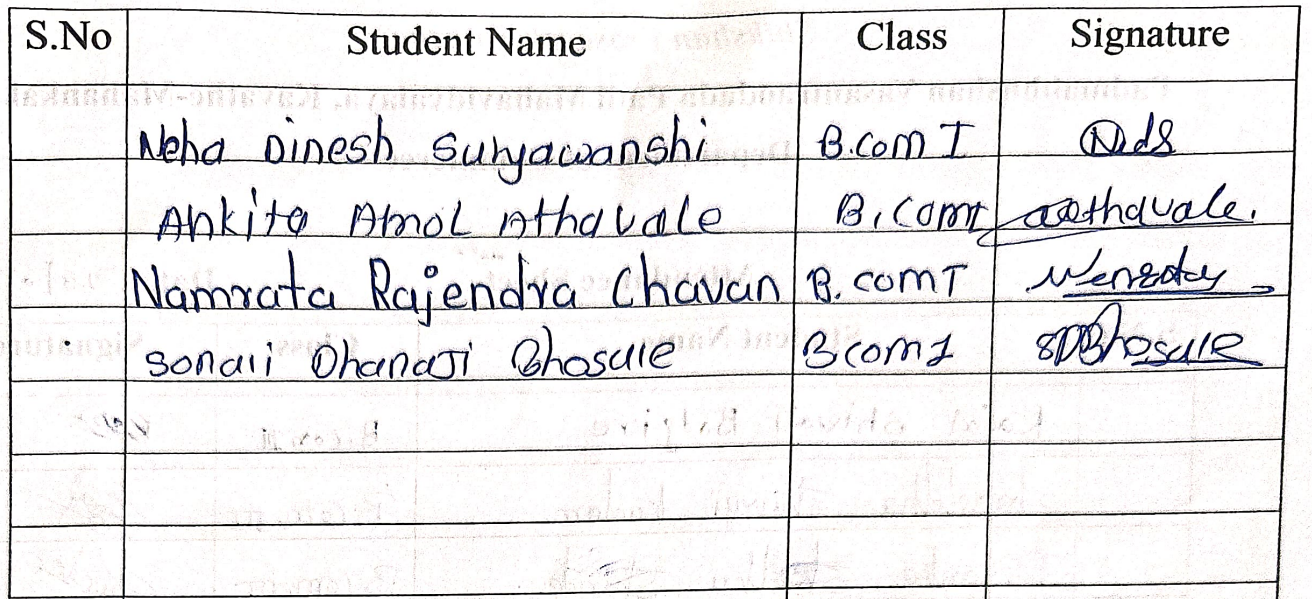 S.No Student Name Class Signature
Neha Dinesh Suryawanshi B.com I Nds
Ankita Amol Athavale B.com I aathavale.
Namrata Rajendra Chavan B.com I
Sonali Dhanaji Bhosale Bcom I SDBhosale